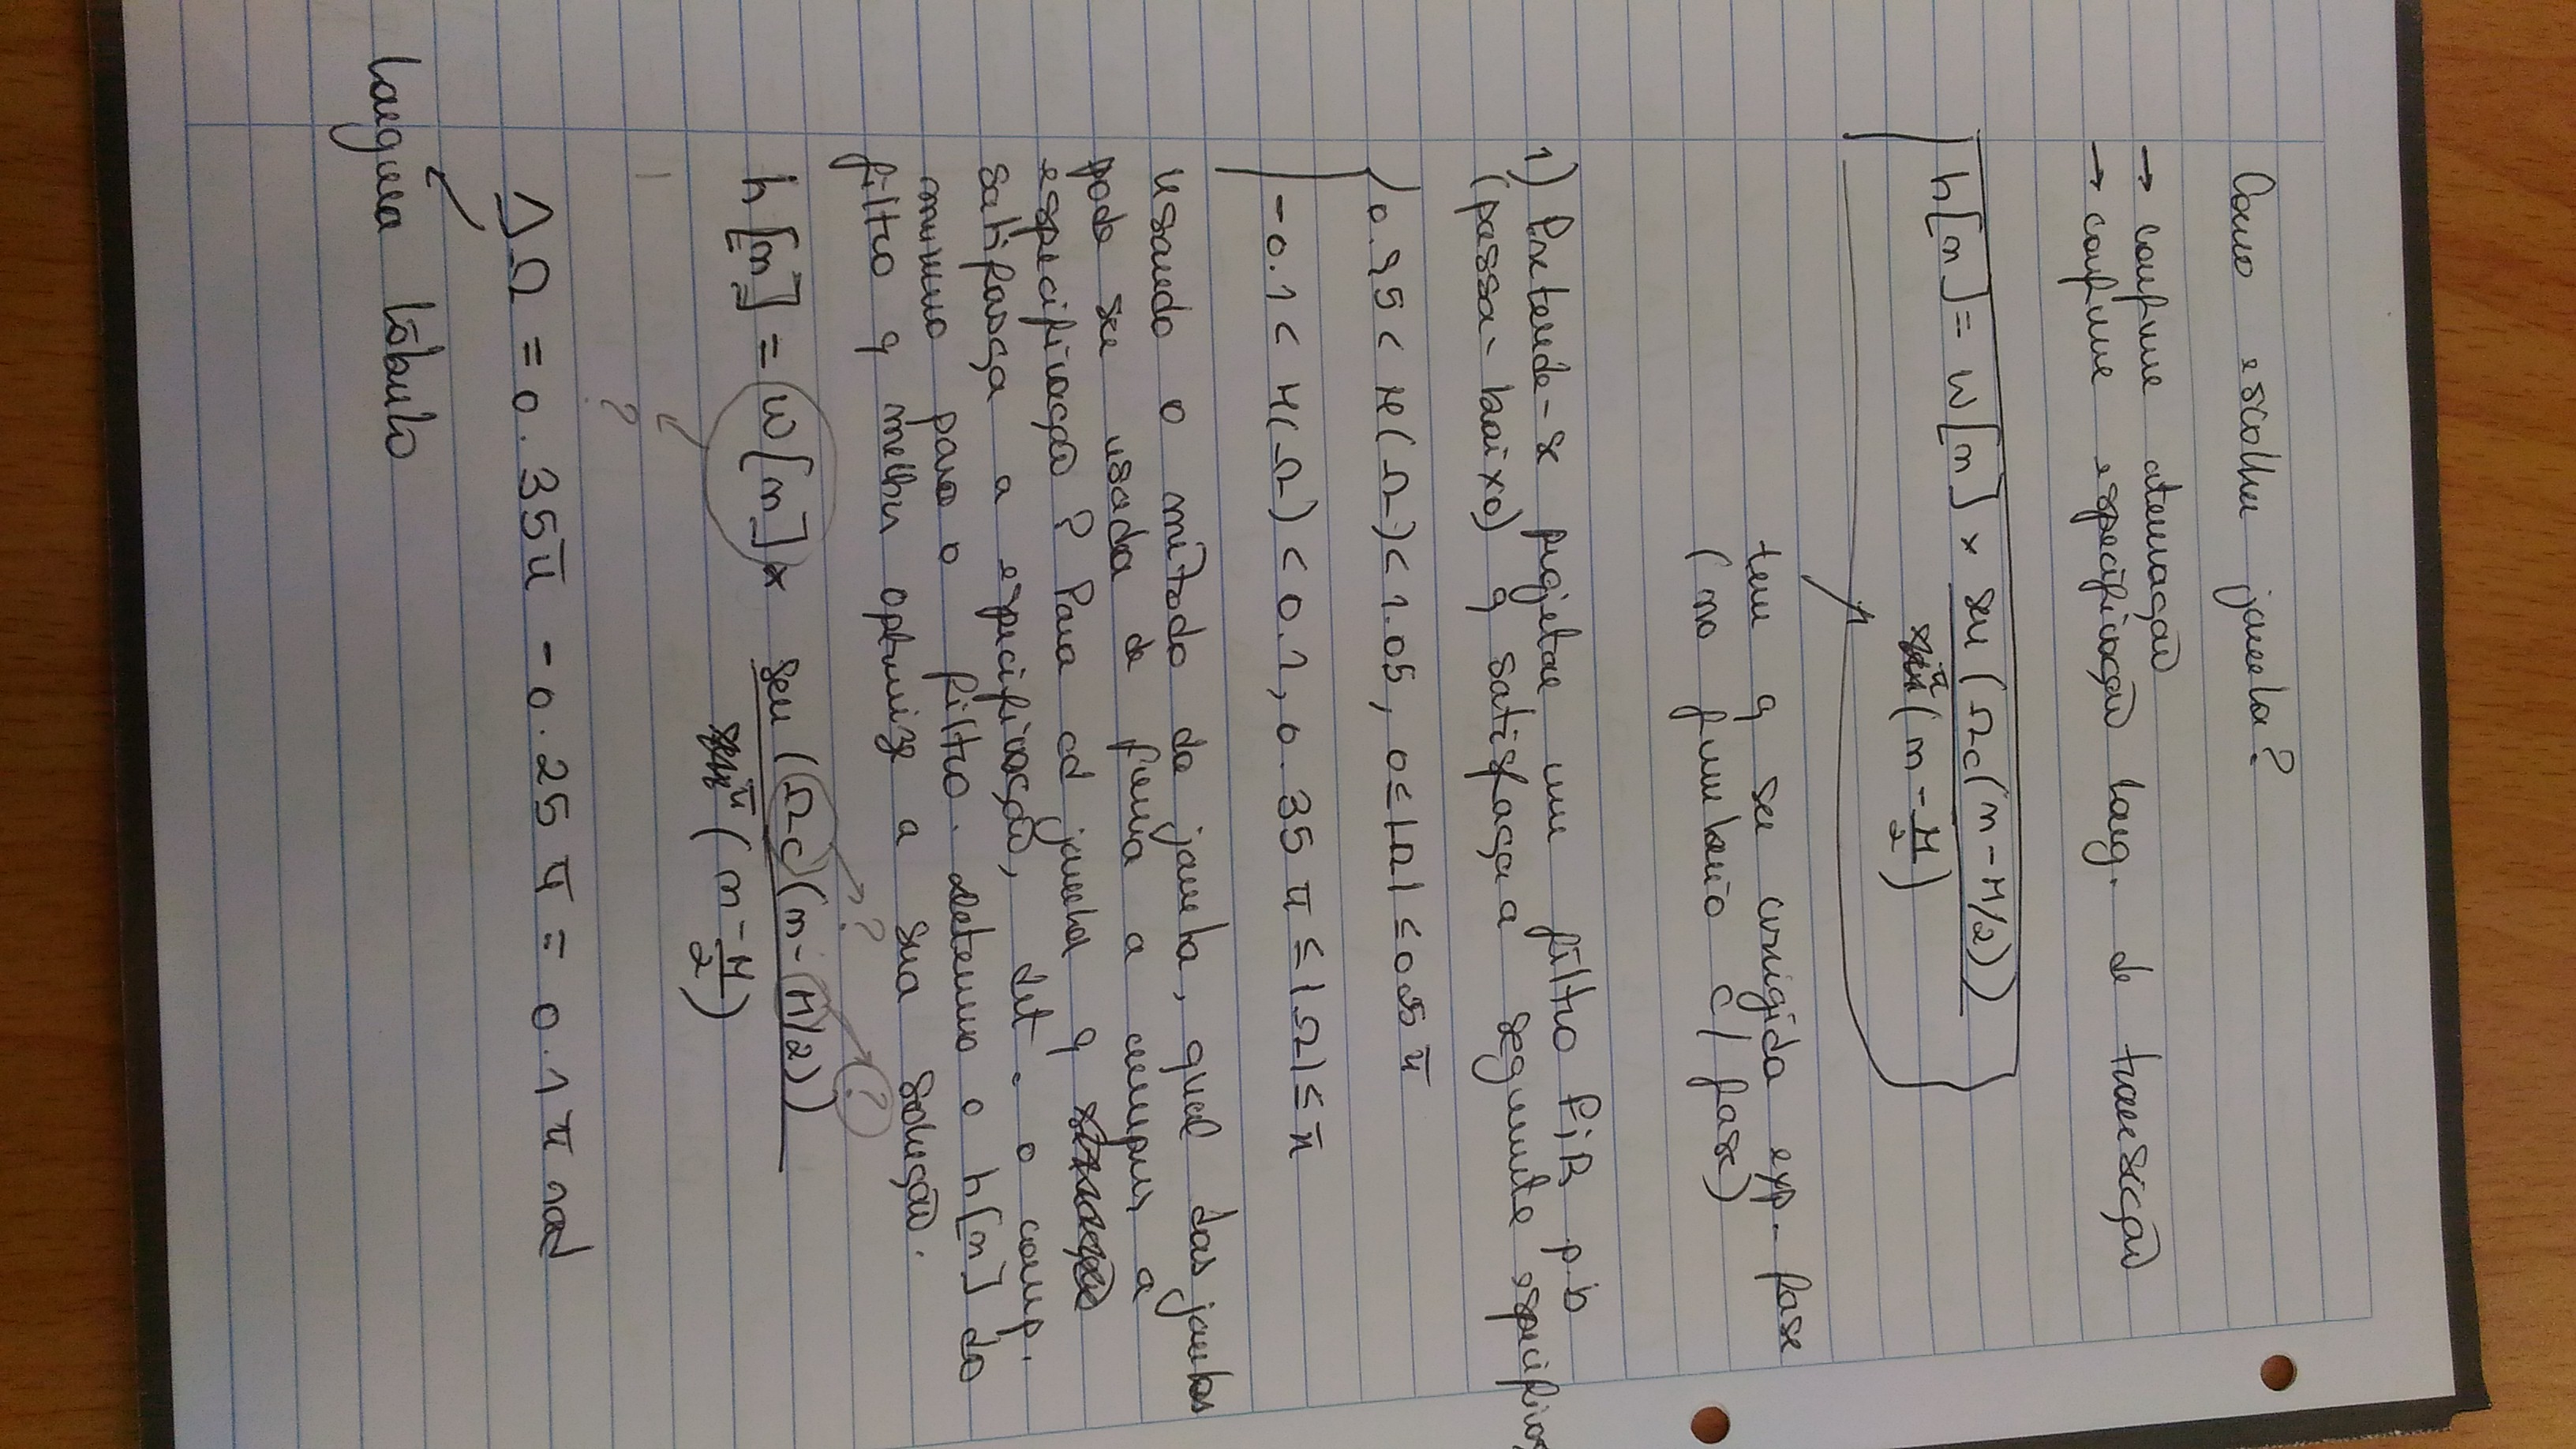 Como escolher janela?
→ conforme atenuação
→ conforme especificação larg. de transição
h[n] = w[n] × sen(Ωc(n-M/2))
π(n - M/2)
tem q ser corrigida exp. fase
(no formulário c/ fase)
1) Pretende-se projetar um filtro FiR p.b
(passa-baixo) q satisfaça a seguinte
0.95 < H(Ω) < 1.05, 0 ≤ |Ω| ≤ 0.25 π
-0.1 < H(Ω) < 0.1, 0.35 π ≤ |Ω| ≤ π
Usando o método da janela, qual das janelas
pode ser usada de forma a cumprir a
especificação? Para cd janela q
satisfasça a especificação, det. o comp.
minimo para o filtro. Determo o h[n] do
filtro q melhor optimize a sua solução.
? ?
h[n] = w[n] × sen(Ωc(n-M/2))
π(n - M/2)
?
ΔΩ = 0.35π - 0.25π = 0.1π rad
largura lóbulo